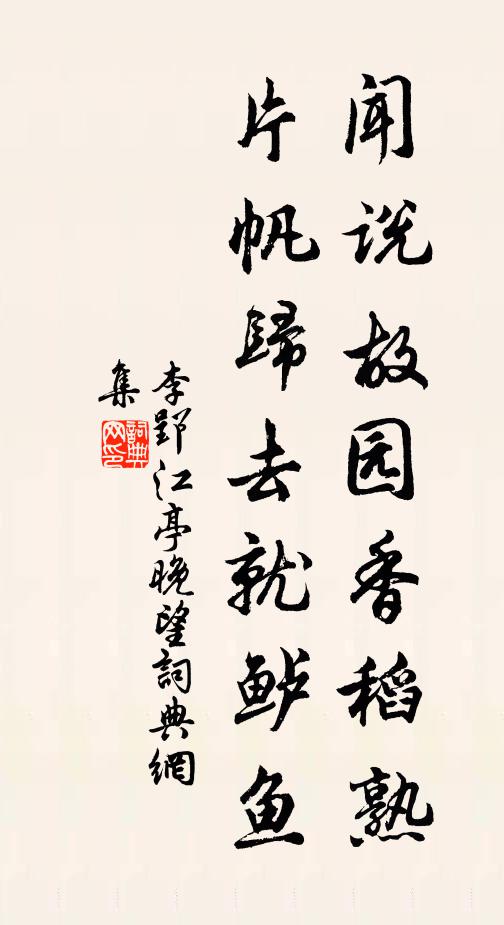 闻说故园香稻熟
片帆歸去就鲈鱼
李郢江亭晚望詞典網
集
詞典网印